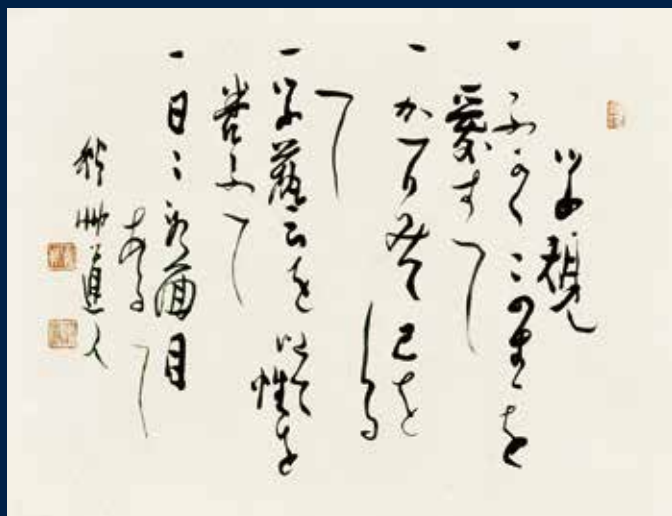 学規
一ふかくこの生を
愛すへし
一かへりみて己を
しる
へし
一学藝を以て性を
養ふへし
一日々新面目
あるへし
秋艸道人